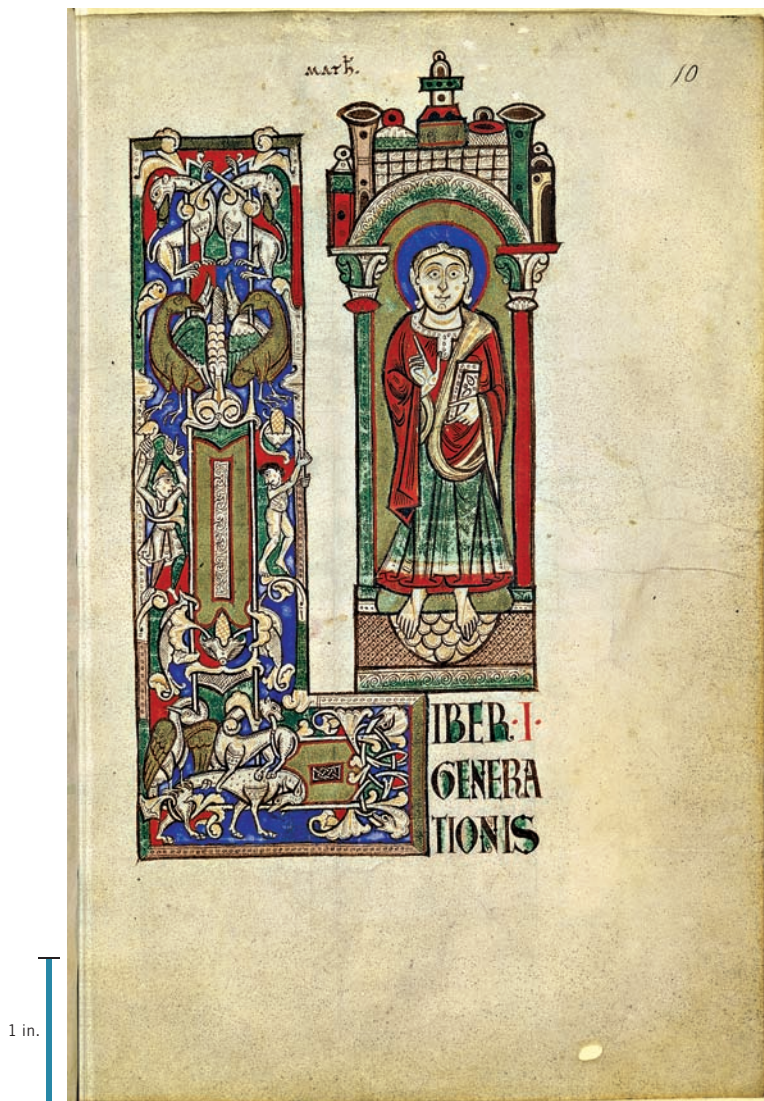 maTħ.
10
L
IBER·I·
GENERA
TIONIS
1 in.